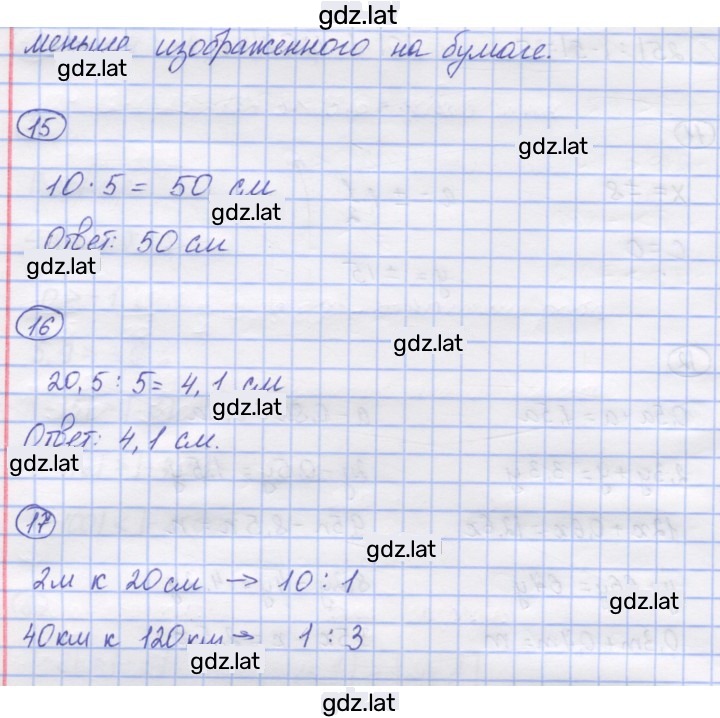 gdz.lat
меньша изображенного на бумаге.
gdz.lat
15
gdz.lat
10 · 5 = 50 см
gdz.lat
Ответ: 50 см
gdz.lat
16
gdz.lat
20,5 : 5 = 4,1 см
gdz.lat
Ответ: 4,1 см.
gdz.lat
17
gdz.lat
2м к 20см → 10 : 1
gdz.lat
40км к 120км → 1 : 3
gdz.lat
gdz.lat